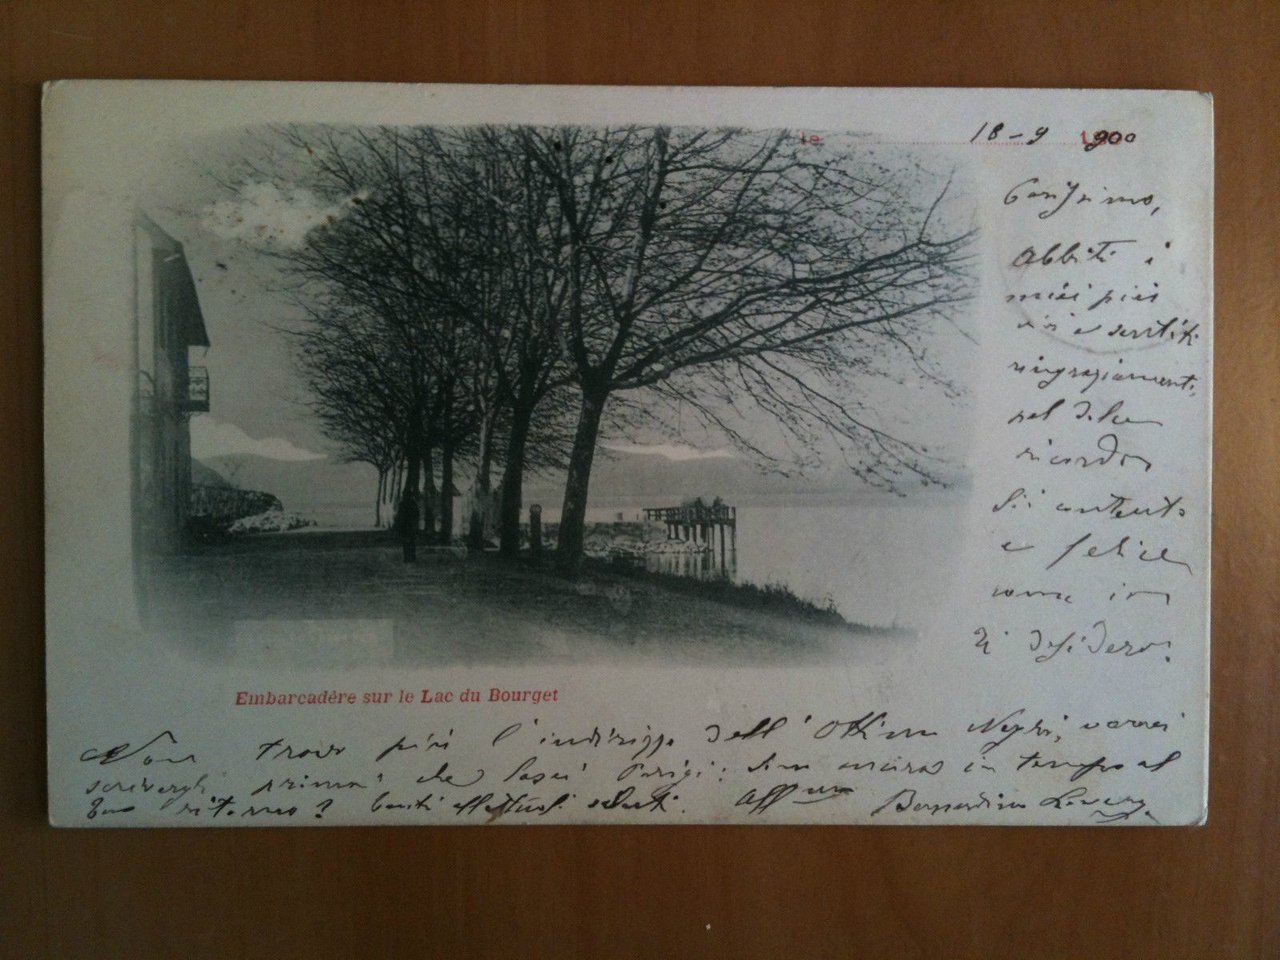 le 18-9 1900
Carissimo,
Abbiti i
miei più
vivi e sentiti
ringraziamenti
pel
ricordo
Sii contento
e felice
come io
ti desidero.
Embarcadère sur le Lac du Bourget
Non trovo più l'indirizzo dell' Ottimo vorrei
scrivergli prima che lasci Parigi: sono ancora in tempo al
suo ritorno? tanti affettuosi saluti. Aff.mo Bernardino